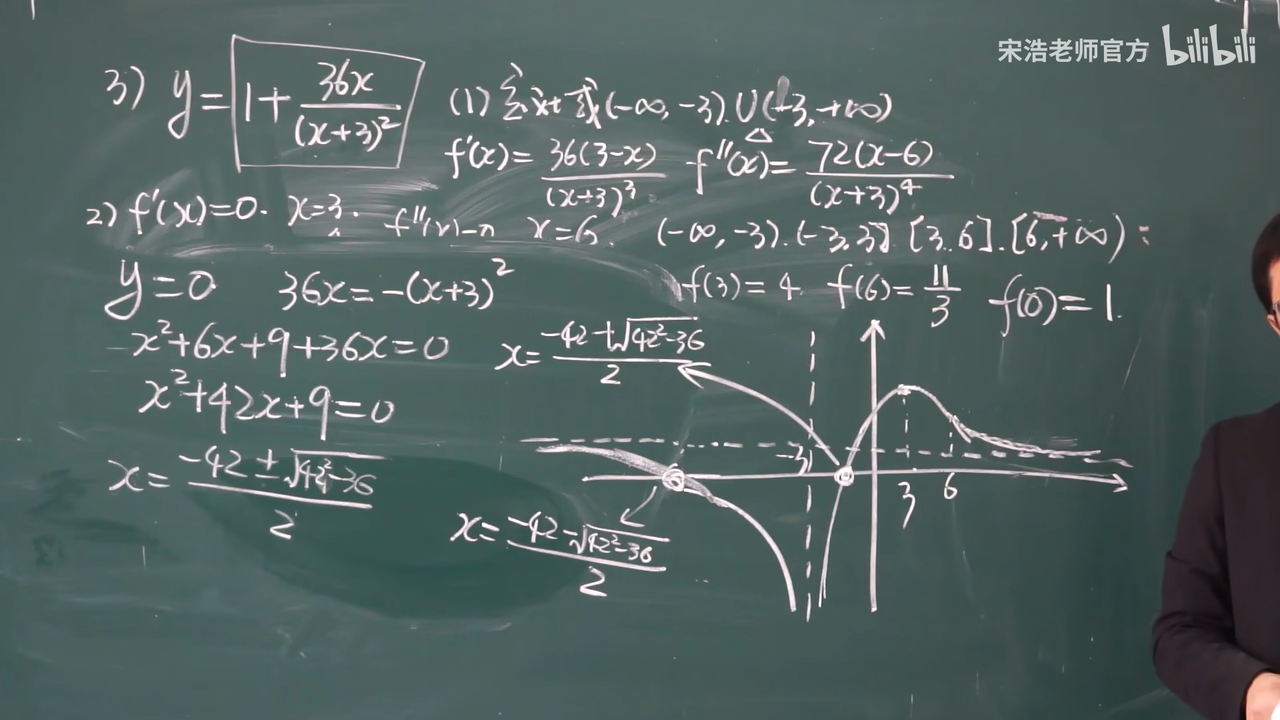 宋浩老师官方 bilibili
3) y = 1+ 36x/(x+3)²
(1) 定义域 (-∞, -3) ∪ (-3, +∞)
f'(x)= 36(3-x)/(x+3)³ f''(x)= 72(x-6)/(x+3)⁴
2) f'(x)=0. x=3. f''(x)=0 x=6. (-∞, -3). (-3, 3]. [3. 6]. [6, +∞) :
y=0 36x=-(x+3)² f(3)=4. f(6)= 11/3 f(0)=1.
x²+6x+9+36x=0 x= (-42+√(42²-36))/2
x²+42x+9=0
x= (-42±√(42²-36))/2
-3 3 6
x= (-42-√(42²-36))/2